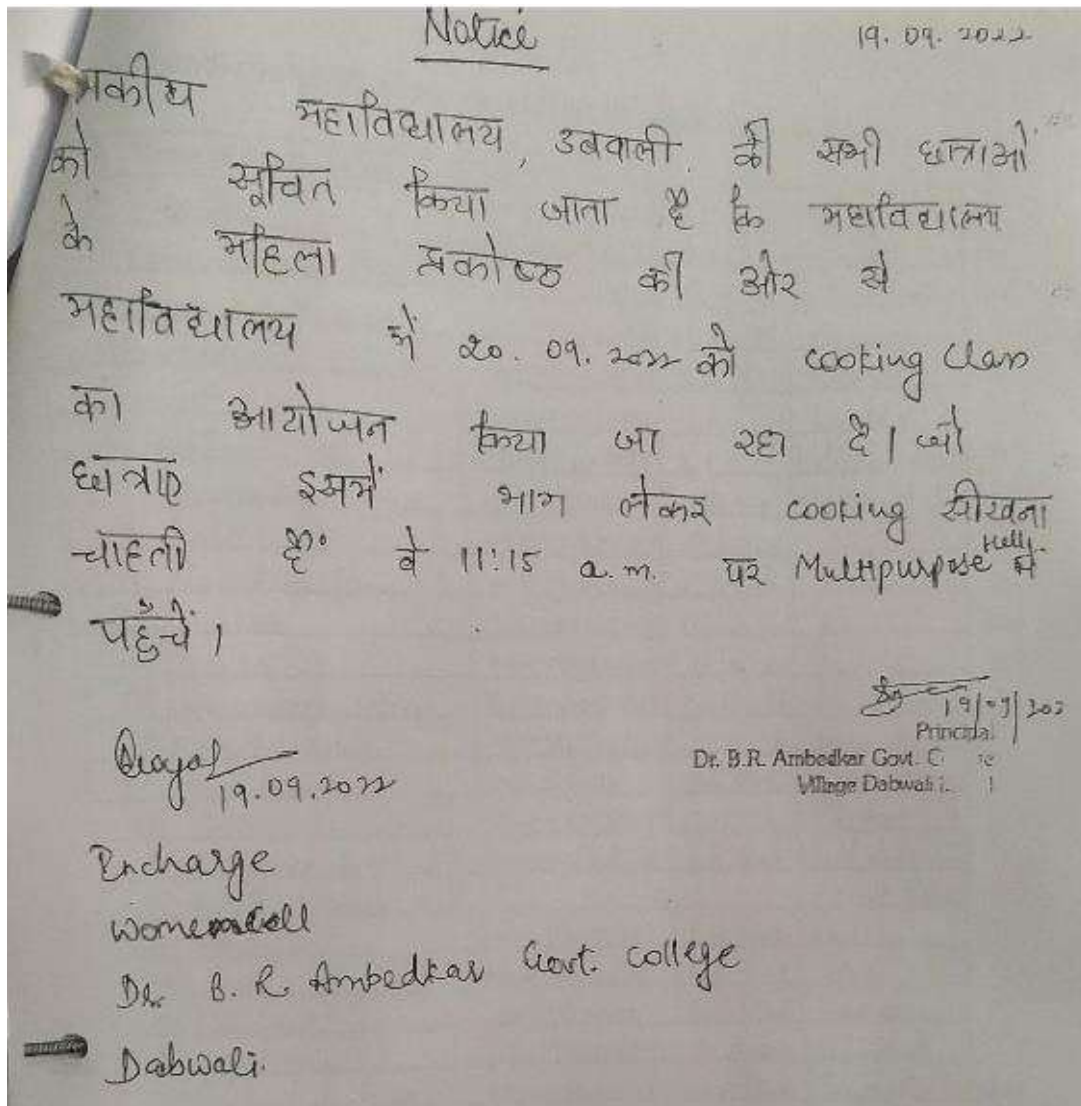 Notice
19.09.2022
महाविद्यालय, डबवाली की सभी छात्राओं
को सूचित किया जाता है कि महाविद्यालय
के महिला प्रकोष्ठ की ओर से
महाविद्यालय में 20.09.2022 को cooking Class
का आयोजन किया जा रहा है। जो
छात्राएं इसमें भाग लेकर cooking सीखना
चाहती हैं वे 11:15 a.m. पर Multipurpose Hall में
पहुँचें।
19/09/202
Principal
Dr. B.R. Ambedkar Govt. C
Village Dabwali
19.09.2022
Incharge
Women Cell
Dr. B. R. Ambedkar Govt. College
Dabwali.